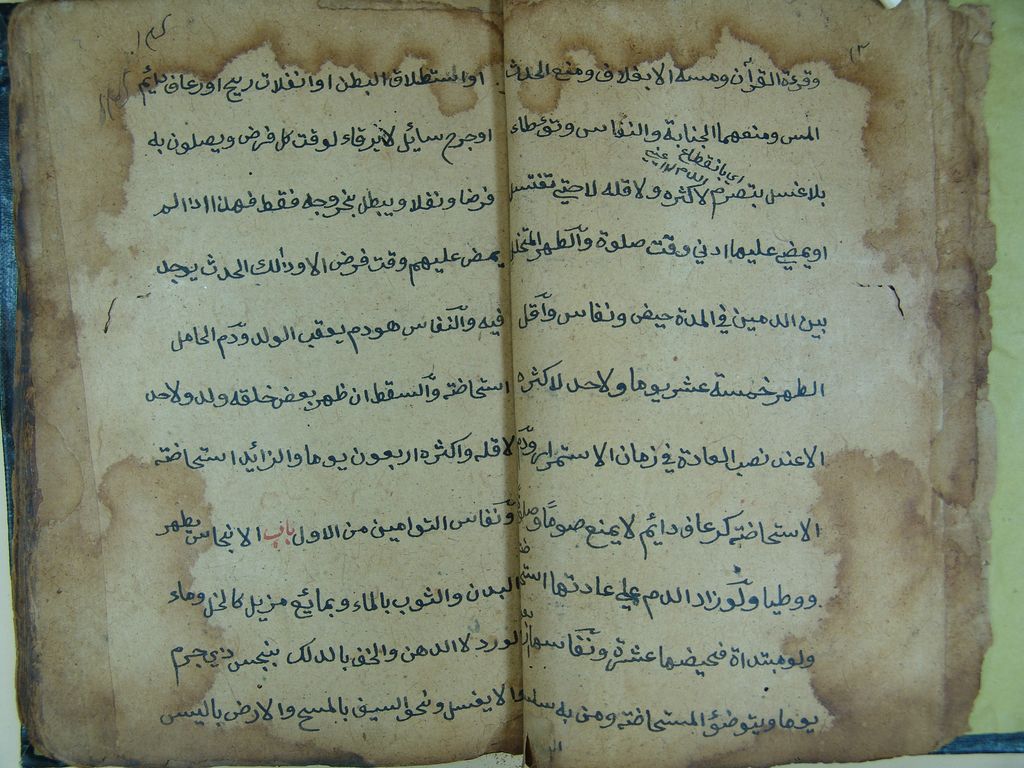 وقرءة القرآن ومسه الا بغلاف ومنع الحدث
المس ومنعهما الجنابة والنفاس وتؤطاء
اى بانقطاع الدم
بلا غسل بتصرم لاكثره ولاقله لا حتي تغتسل
او يمضي عليها ادني وقت صلوة وآلطهر المتخلل
بين الدمين في المدة حيض ونفاس وآقل
الطهر خمسة عشر يوما ولا حد لاكثره
الا عند نصب العادة في زمان الاستمرار ودم
الاستحاضته كرعاف دائم لا يمنع صوما وصلوة
ووطيا ولو زاد الدم علي عادتها استحاضة
ولو مبتداة فحيضها عشرة ونفاسها
يوما ويتوضؤ المستحاضته ومن به سلس
او استطلاق البطن او انفلات ريح او رعاف دائم
او جرح سايل لا يرقاء لوقت كل فرض ويصلون به
فرضا ونفلا ويبطل بخروجه فقط فهذا اذا لم
يمض عليهم وقت فرض الا وذلك الحدث يوجد
فيه وآلنفاس هو دم يعقب الولد ودم الحامل
استحاضته وآلسقط ان ظهر بعض خلقه ولد ولا حد
لاقله واكثره اربعون يوما والزائد استحاضته
ونفاس التوامين من الاول باب الانجاس يطهر
البدن والثوب بالماء وبمائع مزيل كالخل وماء
الورد لا الدهن والخف بالدلك بنجس ذي جرم
والا يغسل ونحو السيف بالمسح والارض باليبس